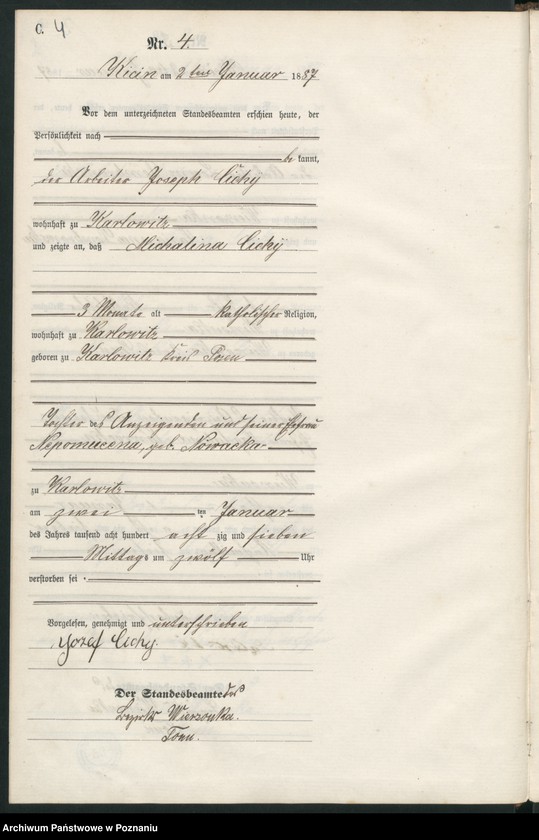 C. 4
Nr. 4.
Kicin am 2ten Januar 1887
Vor dem unterzeichneten Standesbeamten erschien heute, der
Persönlichkeit nach
bekannt,
der Arbeiter Joseph Cichy
wohnhaft zu Karlowitz
und zeigte an, daß Michalina Cichÿ
3 Monate alt katholischer Religion,
wohnhaft zu Karlowitz
geboren zu Karlowitz Kreis Posen
Tochter des Anzeigenden und seiner Ehefrau
Nepomucena, geb. Nowacka
zu Karlowitz
am zwei ten Januar
des Jahres tausend acht hundert acht zig und sieben
Mittags um zwölf Uhr
verstorben sei.
Vorgelesen, genehmigt und unterschrieben
Jozef Cichy.
Der Standesbeamte des
Bezirks Wierzonka.
Archiwum Państwowe w Poznaniu